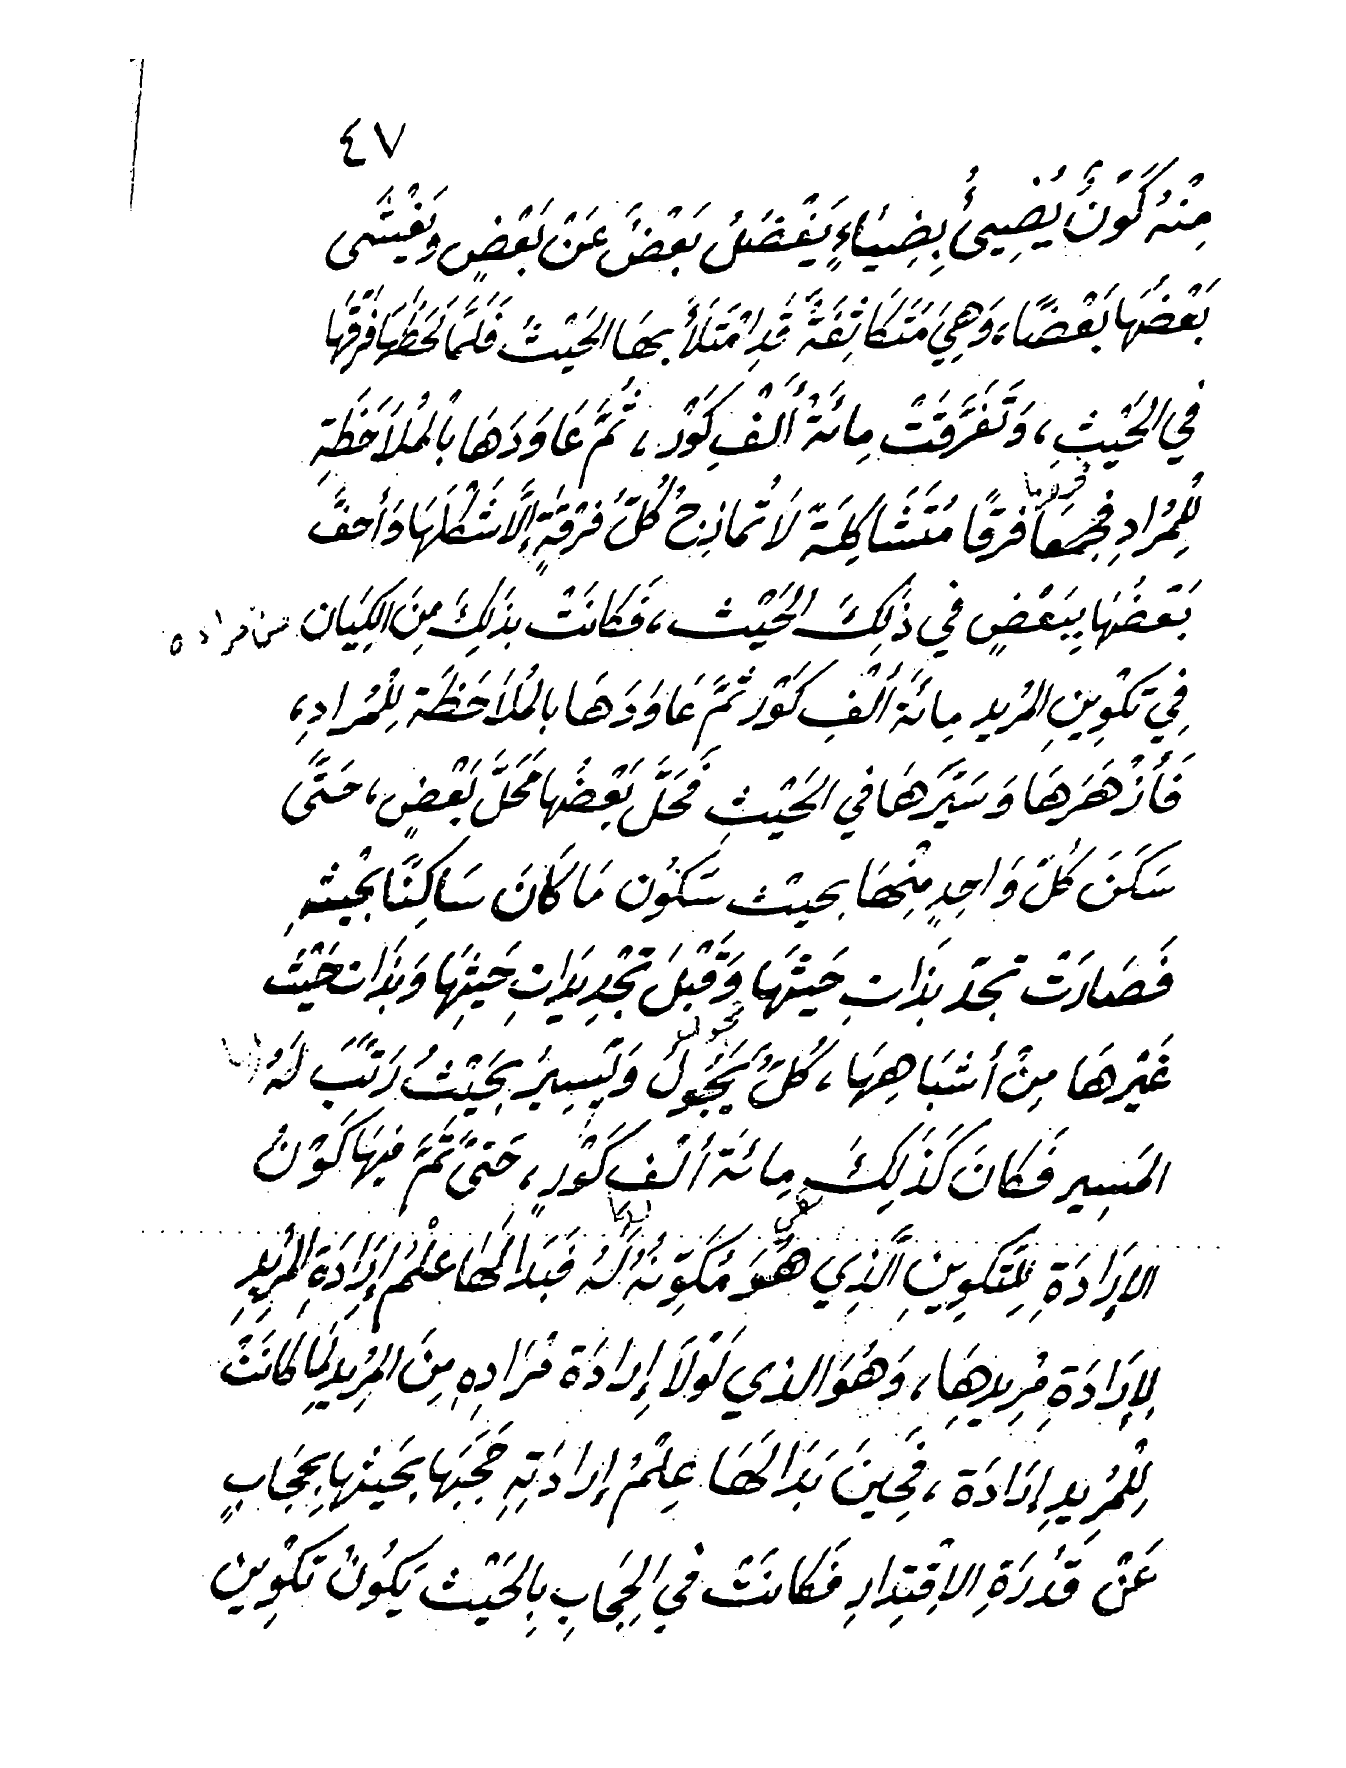 ٤٧
مِنْهُ كَوْنٌ يُضِيئُ بِضِيَاءٍ يَفْصَلُ بَعْضَ عَنْ بَعْضٍ وَيَغْشَى
بَعْضُهَا بَعْضًا، وَهِيَ مَتَكَاثِفَةٌ قَدِ امْتَلَأَ بهَا الحَيْثُ فَلَمَّا لَحَظَهَا فَرَّقَهَا
فِي الحَيْثِ، وَتَفَرَّقَتْ مِائَةُ أَلْفِ كَوْر، ثُمَّ عَاوَدَهَا بِالْمُلَاحَظَةِ
لِلْمُرَادِ فجمعَهَا فرقًا مُتَشَاكِلَةً لَا تُمازِجُ كُلُّ فِرْقَةٍ إِلَّا شَكْلَهَا وَأحفَّ
بَعْضُهَا بِبَعْضٍ فِي ذَلِكَ الحَيْث، فَكَانَتْ بذَلِكَ مِنَ الكِيَان
فِي تَكْوِينِ المُرِيدِ مِائَةَ أَلْفِ كَوْر ثُمَّ عَاوَدَهَا بالمُلَاحَظَة لِلْمُرادِ،
فَأَزْهَرَهَا وَسَيَّرَهَا في الحَيْثِ فَحَلَّ بَعْضُهَا مَحَلَّ بَعْضٍ، حَتَّى
سَكَنَ كُلّ وَاحِدٍ مِنْهَا بحيث سَكَوُن مَا كَانَ سَاكِنًا بحْيثهِ
فَصَارَتْ تجدّ بذَاتِ حَيثهَا وَقَبْلَ تجْدِيدَاتِ حَيثِهَا وَبذَات حَيْث
غَيْرهَا مِنْ أشبَاهِهَا، كُلٌّ يَجُولُ وَيَسِيرُ بِحَيْثُ رَتَّبَ لَهُ
المَسِير فَكَانَ كَذَلِكَ مِائَة ألْف كَوْرٍ، حَتىَّ تَمَّ فيهَا كَوْنُ
الإرَادَةِ لِلتَّكوِينِ الَّذِي هُوَ مُكَوّنهُ لَهُ فَبَدَا لَهَا عِلْمُ إِرَادَةِ المُرِيدِ
لإِرَادَةِ مُرِيدهَا، وَهُوَ الذي لَوْلَا إِرادَة مُرَادِهِ مِنَ المُرِيدِ لَمَا كَانَتْ
لِلْمُرِيدِ إِرَادَة، فَحِينَ بَدَا لَهَا عِلْمُ إرادَتِهِ حَجَبَهَا بحَيثهَا بِحِجَابٍ
عَنْ قُدْرَةِ الاِقْتِدَارِ فَكَانَتْ في الحِجَابِ بِالحَيْث يَكُونُ تَكْوِين